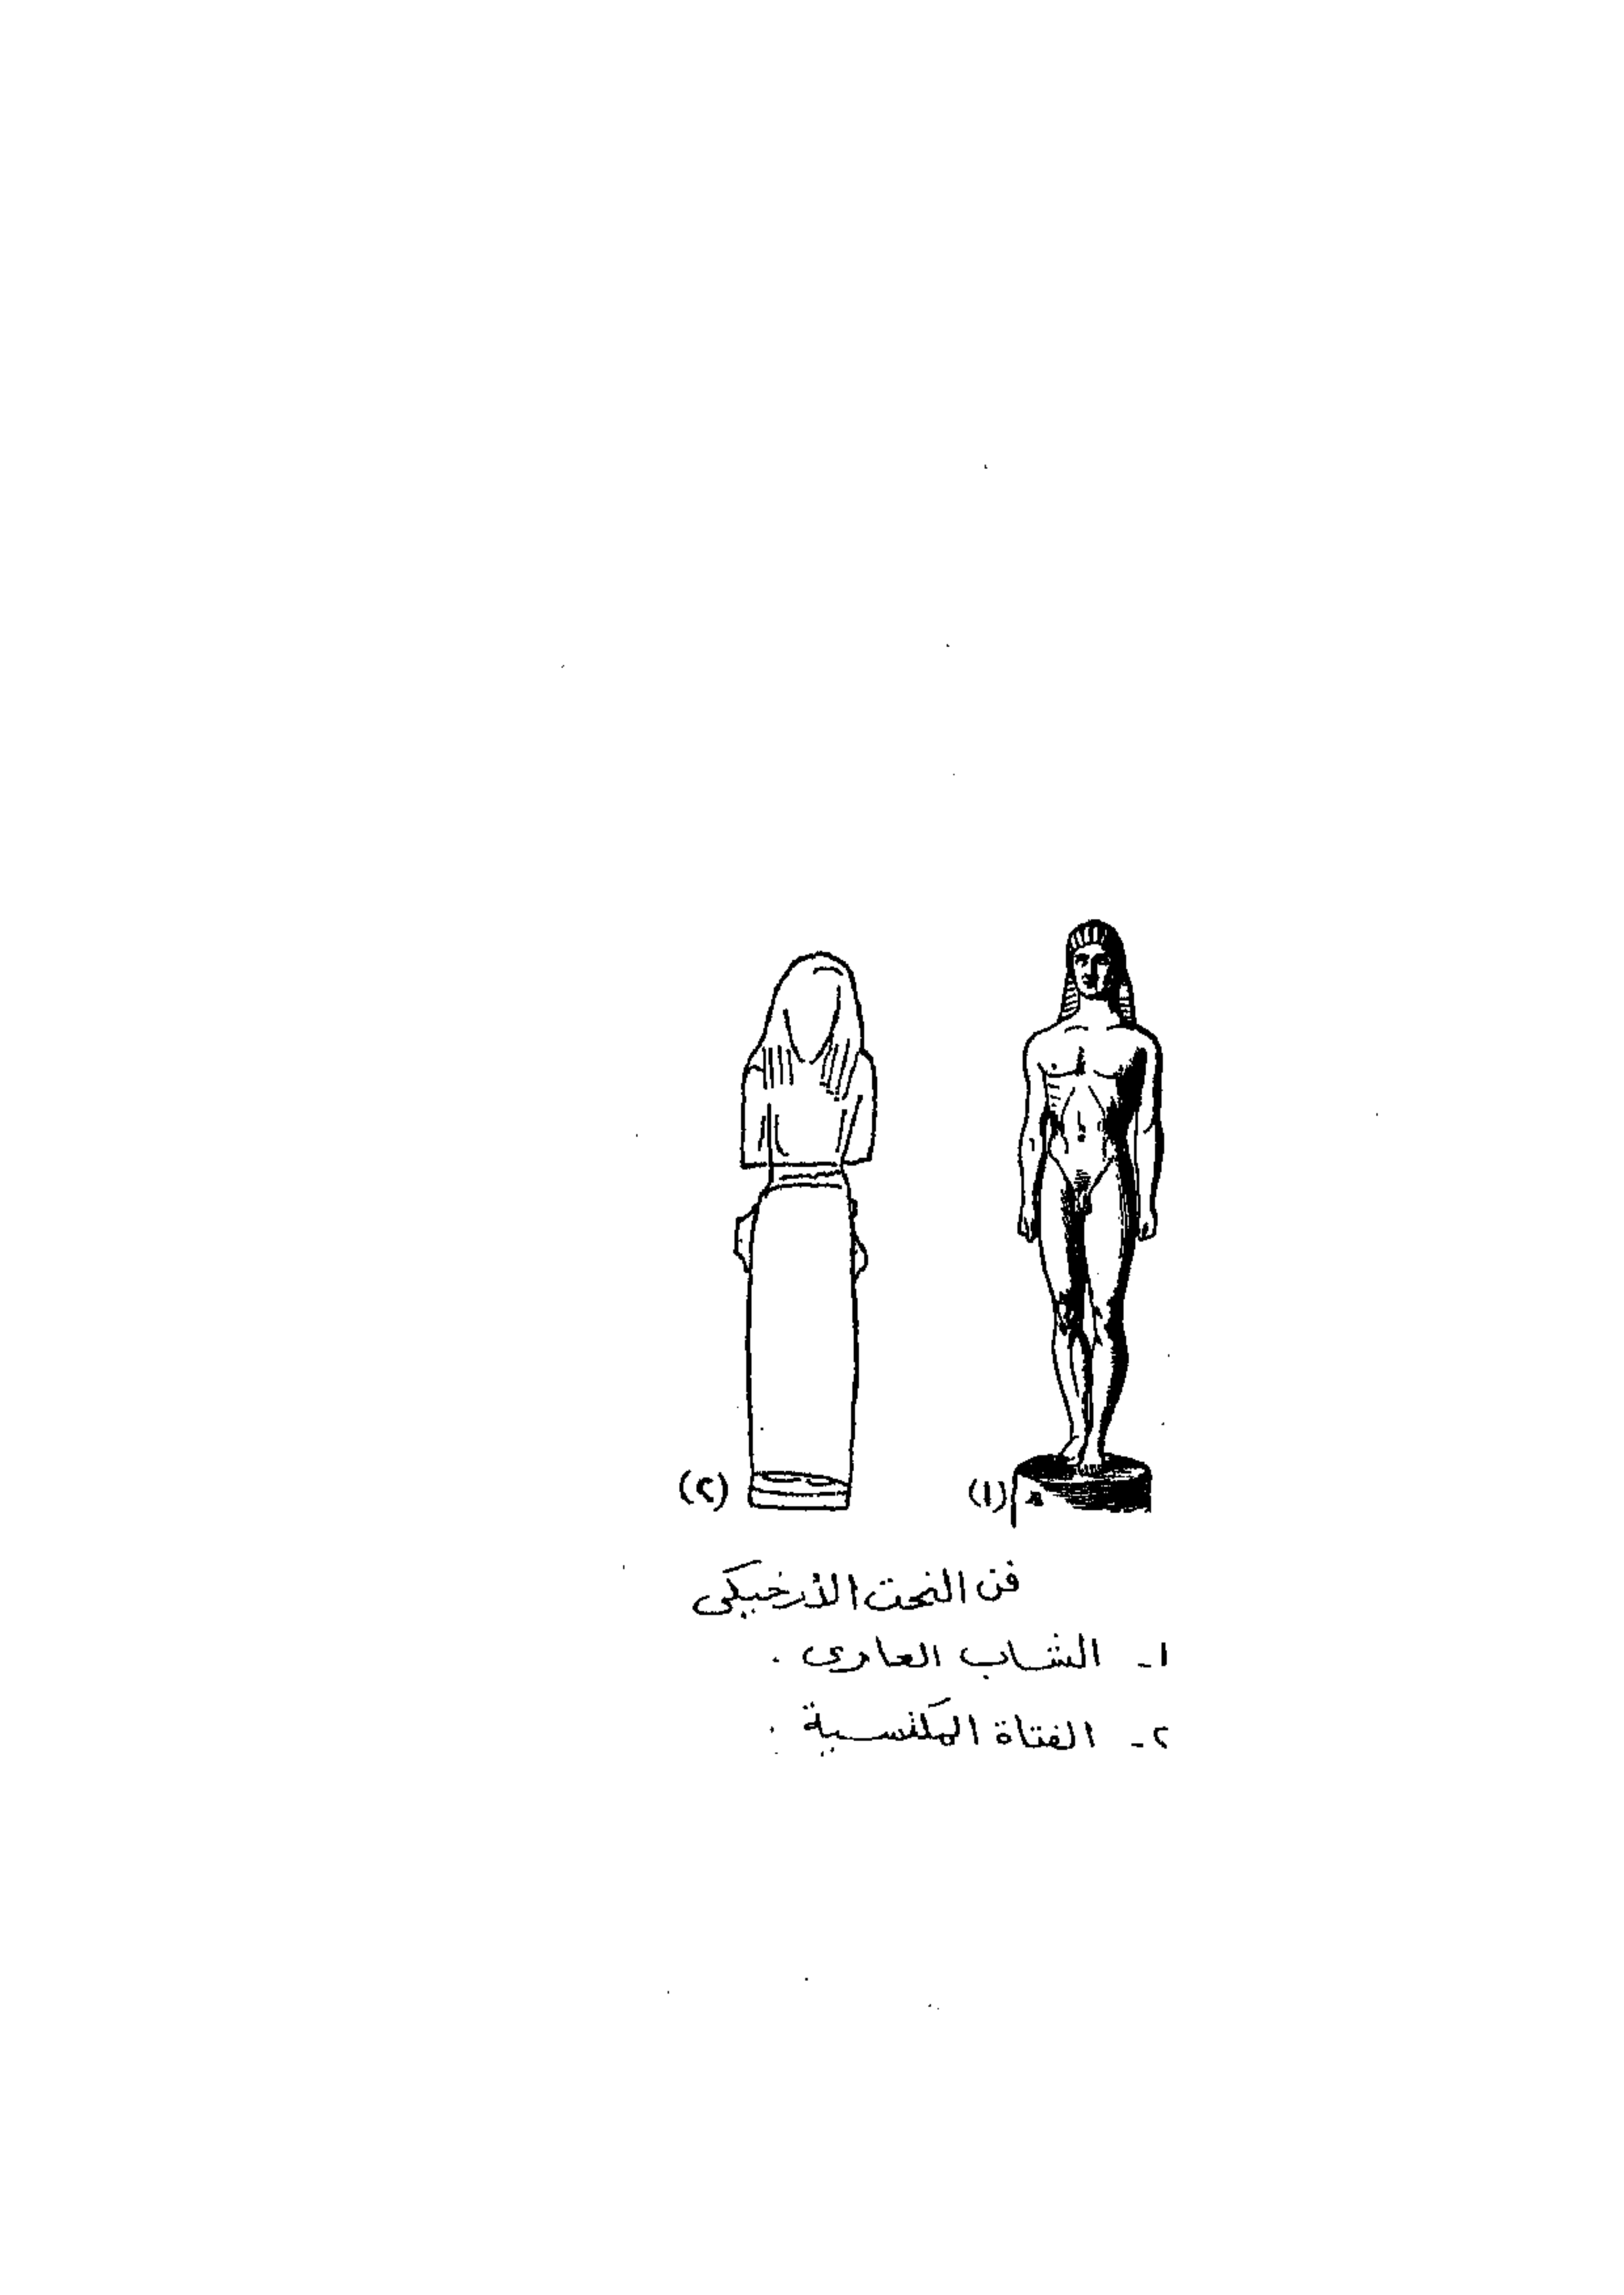 (١) (٢)
فن النحت الأرخيكى
١ـ الشاب العارى .
٢ـ الفتاة المكتسية .